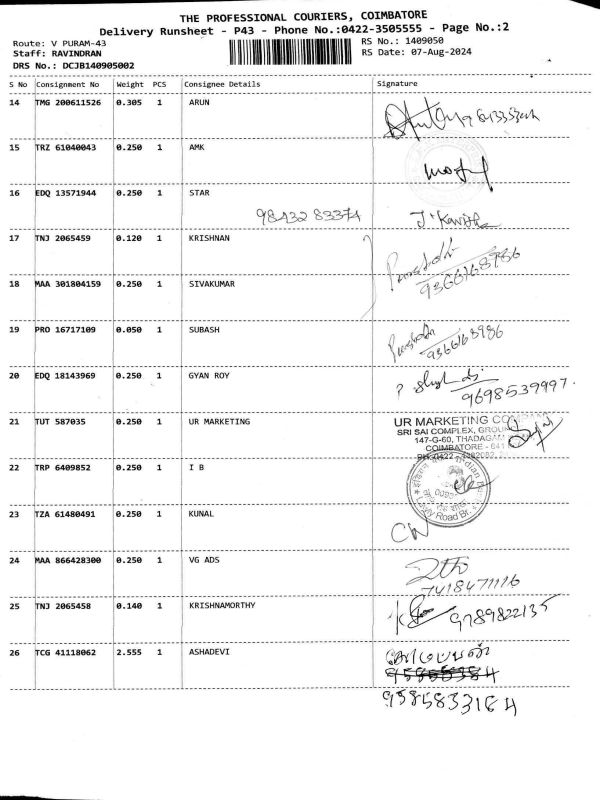 THE PROFESSIONAL COURIERS, COIMBATORE
Delivery Runsheet - P43 - Phone No.:0422-3505555 - Page No.:2
Route: V PURAM-43 RS No.: 1409050
Staff: RAVINDRAN RS Date: 07-Aug-2024
DRS No.: DCJB140905002
S No Consignment No Weight PCS Consignee Details Signature
14 TMG 200611526 0.305 1 ARUN
15 TRZ 61040043 0.250 1 AMK
16 EDQ 13571944 0.250 1 STAR
98432 83374 J. Kavitha
17 TNJ 2065459 0.120 1 KRISHNAN
9366168986
18 MAA 301804159 0.250 1 SIVAKUMAR
19 PRO 16717109 0.050 1 SUBASH
9366168986
20 EDQ 18143969 0.250 1 GYAN ROY
9698539997.
21 TUT 587035 0.250 1 UR MARKETING
UR MARKETING
SRI SAI COMPLEX, GROUN
147-G-60, THADAGAM
COIMBATORE - 641
22 TRP 6409852 0.250 1 I B
Lawly Road Br.
23 TZA 61480491 0.250 1 KUNAL
24 MAA 866428300 0.250 1 VG ADS
7418471116
25 TNJ 2065458 0.140 1 KRISHNAMORTHY
9789822135
26 TCG 41118062 2.555 1 ASHADEVI
9585833164